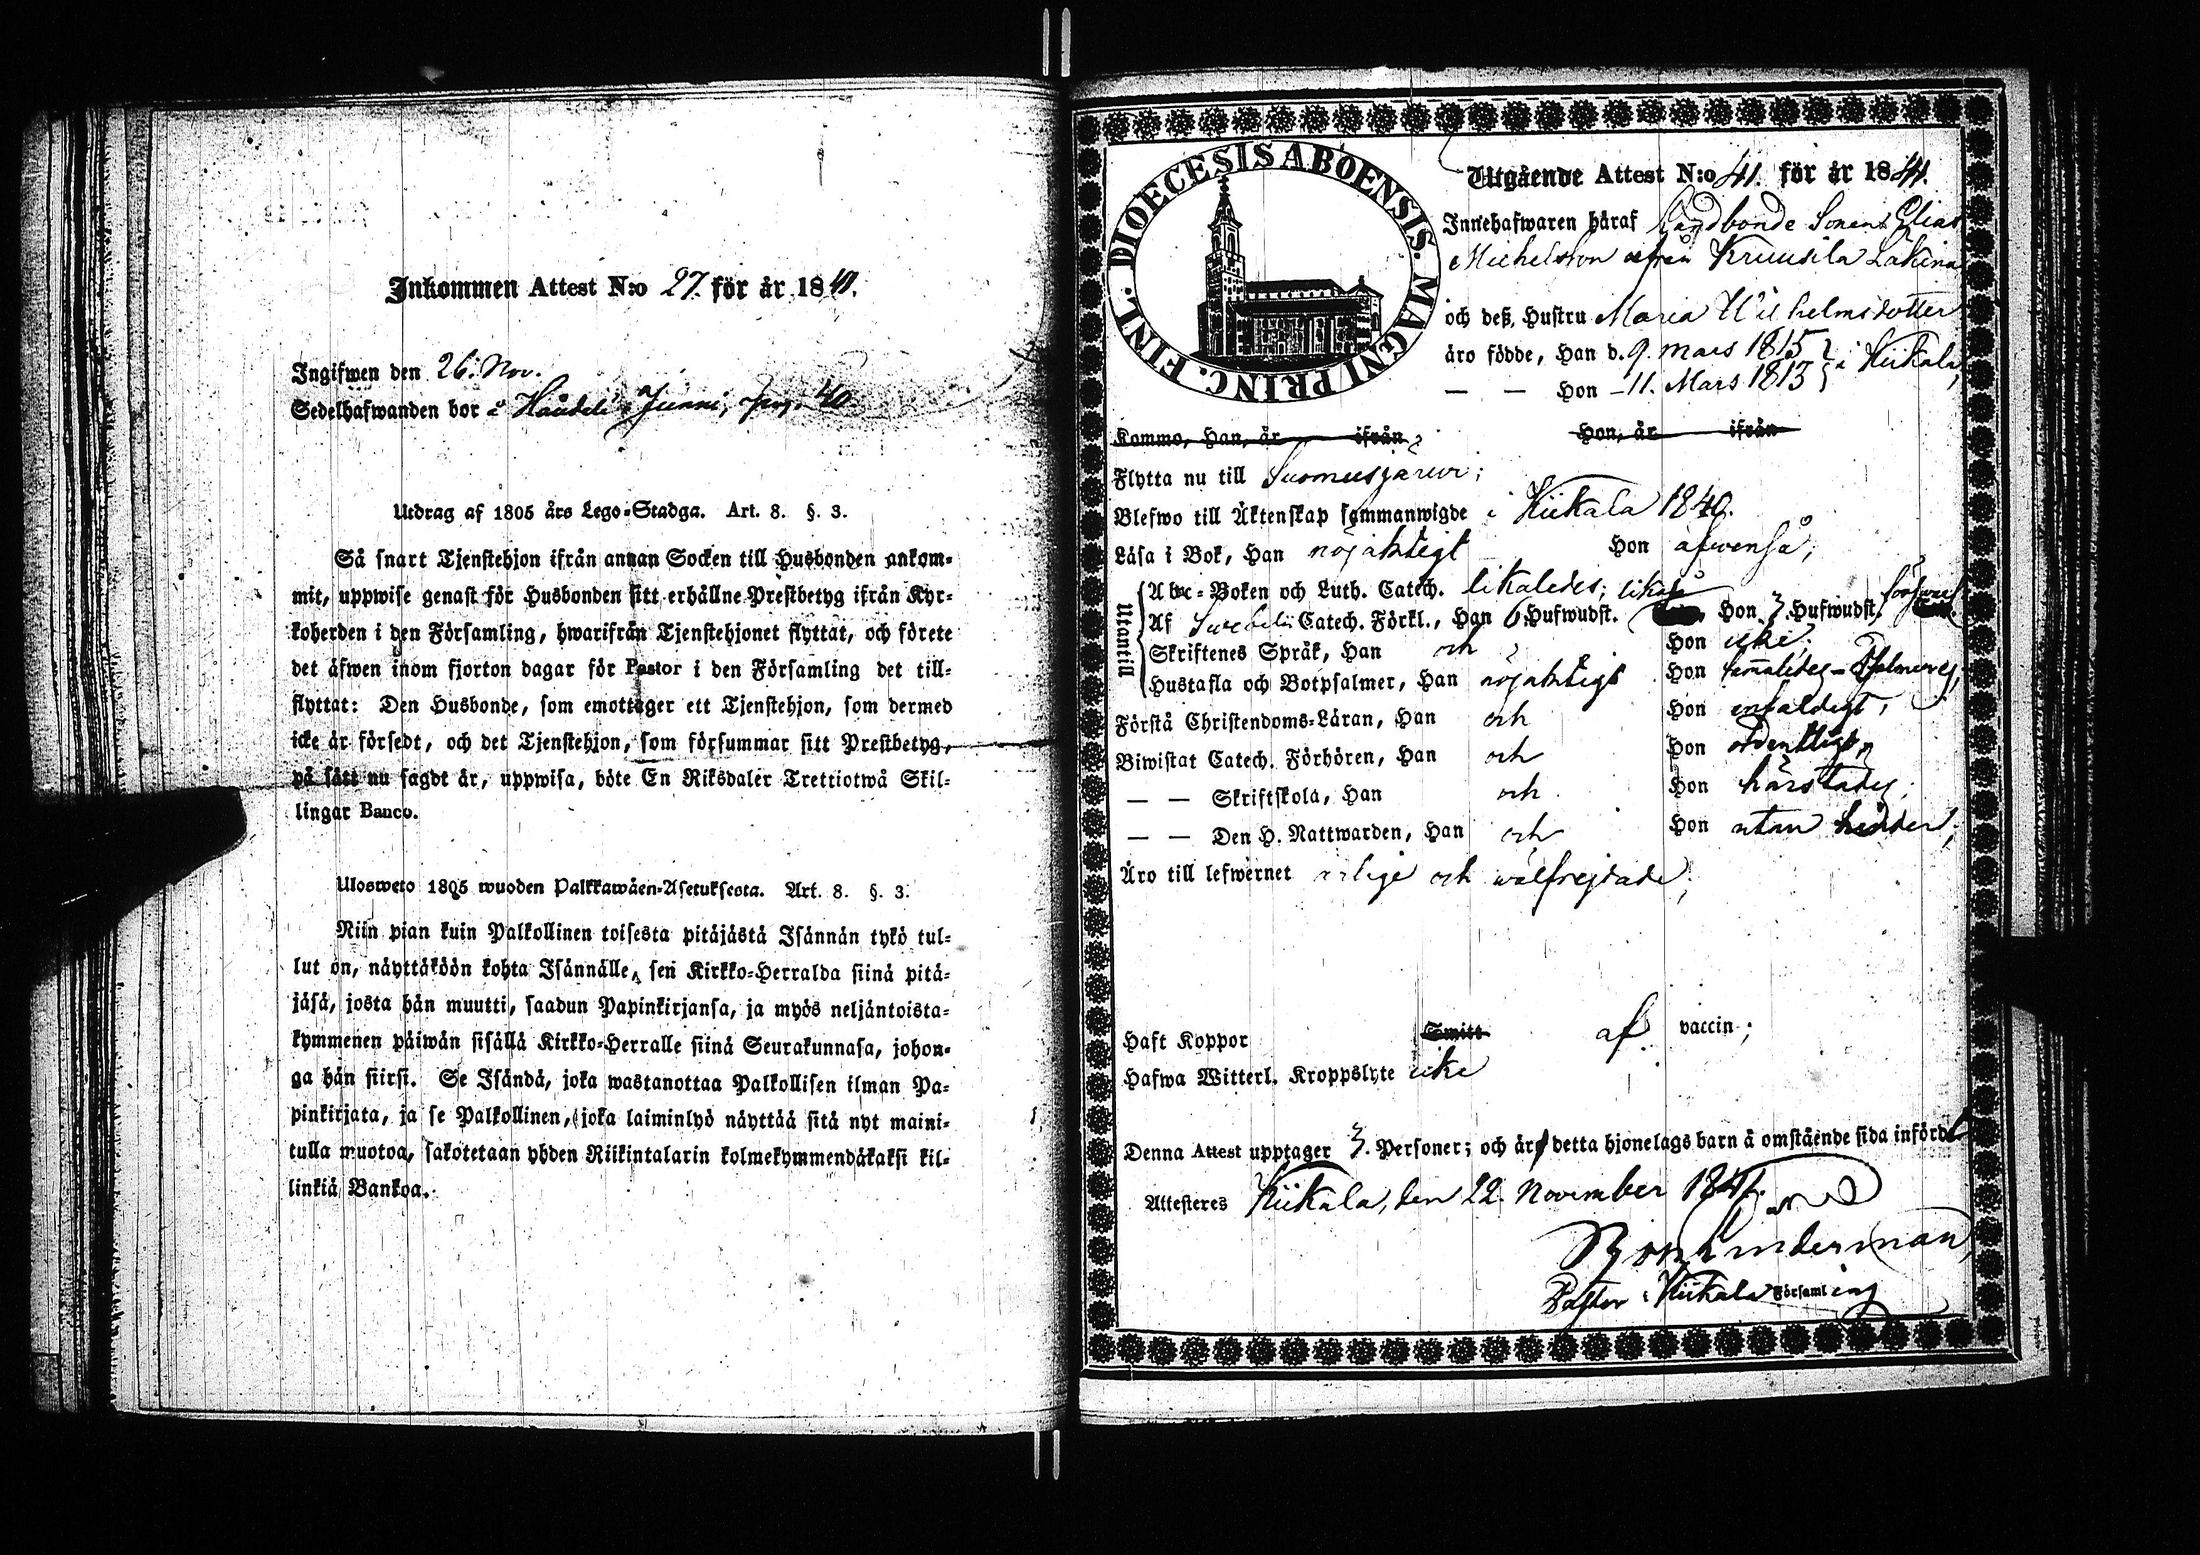 Inkommen Attest N:o 27. för år 1841.
Ingifwen den 26. Nov.
Sedelhafwanden bor i Junni, pag. 40
Utdrag af 1805 års Lego-Stadga. Art. 8. §. 3.
Så snart Tjenstehjon ifrån annan Socken till Husbonden ankom-
mit, uppwise genast för Husbonden sitt erhållne Prestbetyg ifrån Kyr-
koherden i den Församling, hwarifrån Tjenstehjonet flyttat, och förete
det äfwen inom fjorton dagar för Pastor i den Församling det till-
flyttat: Den Husbonde, som emottager ett Tjenstehjon, som dermed
icke är försedt, och det Tjenstehjon, som försummar sitt Prestbetyg,
på sätt nu sagdt är, uppwisa, böte En Riksdaler Trettiotwå Skil-
lingar Banco.
Ulosweto 1805 wuoden Palkkawäen-Asetuksesta. Art. 8. §. 3.
Niin pian kuin Palkollinen toisesta pitäjästä Isännän tykö tul-
lut on, näyttäköön kohta Isännälle, sen Kirkko-Herralda siinä pitä-
jäsä, josta hän muutti, saadun Papinkirjansa, ja myös neljäntoista-
kymmenen päiwän sisällä Kirkko-Herralle siinä Seurakunnasa, johon-
ga hän siirsi. Se Isändä, joka wastanottaa Palkollisen ilman Pa-
pinkirjata, ja se Palkollinen, joka laiminlyö näyttää sitä nyt maini-
tulla muotoa, sakotetaan yhden Riikintalarin kolmekymmendäkaksi kil-
linkiä Bankoa.
DIOECESIS ABOENSIS. MAGNI PRINC. FINL.
Utgående Attest N:o 41. för år 1841.
Innehafwaren häraf Landbonde Sonen Elias
Michelsson ifrån Kruusila Lakina
och deß Hustru Maria Wilhelmsdotter
äro födde, Han d. 9. Mars 1815 } i Kiikala,
— — Hon - 11. Mars 1813 }
Komme, Han, är ifrån Hon, är ifrån
Flytta nu till Suomusjärwi;
Blefwo till Äktenskap sammanwigde i Kiikala 1840.
Läsa i Bok, Han nöjaktigt Hon äfwenså;
Utantill
Abc-Boken och Luth. Catech. likaledes; likaså
Af Swebeli Catech. Förkl., Han 6 Hufwudst. Hon 3. Hufwudst.
Skriftenes Språk, Han och Hon icke;
Hustafla och Botpsalmer, Han nöjaktigt Hon
Förstå Christendoms-Läran, Han och Hon enfaldigt,
Biwistat Catech. Förhören, Han och Hon ordentligt,
— — Skriftskola, Han och Hon härstädes;
— — Den H. Nattwarden, Han och Hon utan hinder;
Äro till lefwernet ärlige och wälfrejdade;
Haft Koppor Smitt af vaccin;
Hafwa Witterl. Kroppslyte icke
Denna Attest upptager 3. Personer; och är detta hjonelags barn å omstående sida infördt
Attesteres Kiikala, den 22. November 1841.
Pastor i Kiikala Församling